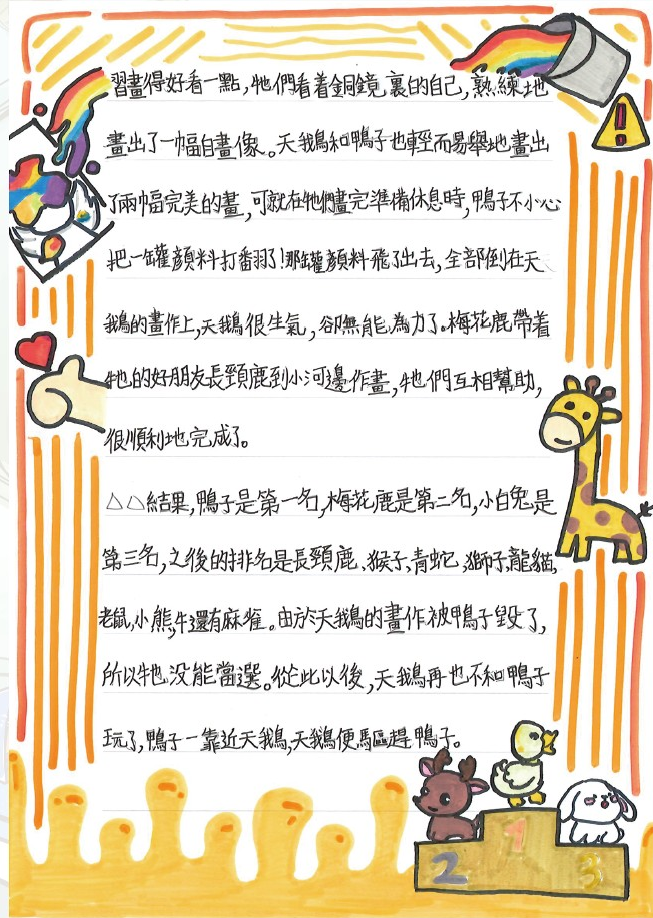 習畫得好看一點,牠們看着銅鏡裏的自己,熟練地
畫出了一幅自畫像。天鵝和鴨子也輕而易舉地畫出
了兩幅完美的畫,可就在牠們畫完準備休息時,鴨子不小心
把一罐顏料打翻了!那罐顏料飛了出去,全部倒在天
鵝的畫作上,天鵝很生氣,卻無能為力了。梅花鹿帶着
牠的好朋友長頸鹿到小河邊作畫,牠們互相幫助,
很順利地完成了。
△△結果,鴨子是第一名,梅花鹿是第二名,小白兔是
第三名,之後的排名是長頸鹿、猴子、青蛇、獅子、龍貓、
老鼠,小熊,牛還有麻雀。由於天鵝的畫作被鴨子毀了,
所以牠没能當選。從此以後,天鵝再也不和鴨子
玩了,鴨子一靠近天鵝,天鵝便馬區趕鴨子。
1
2
3